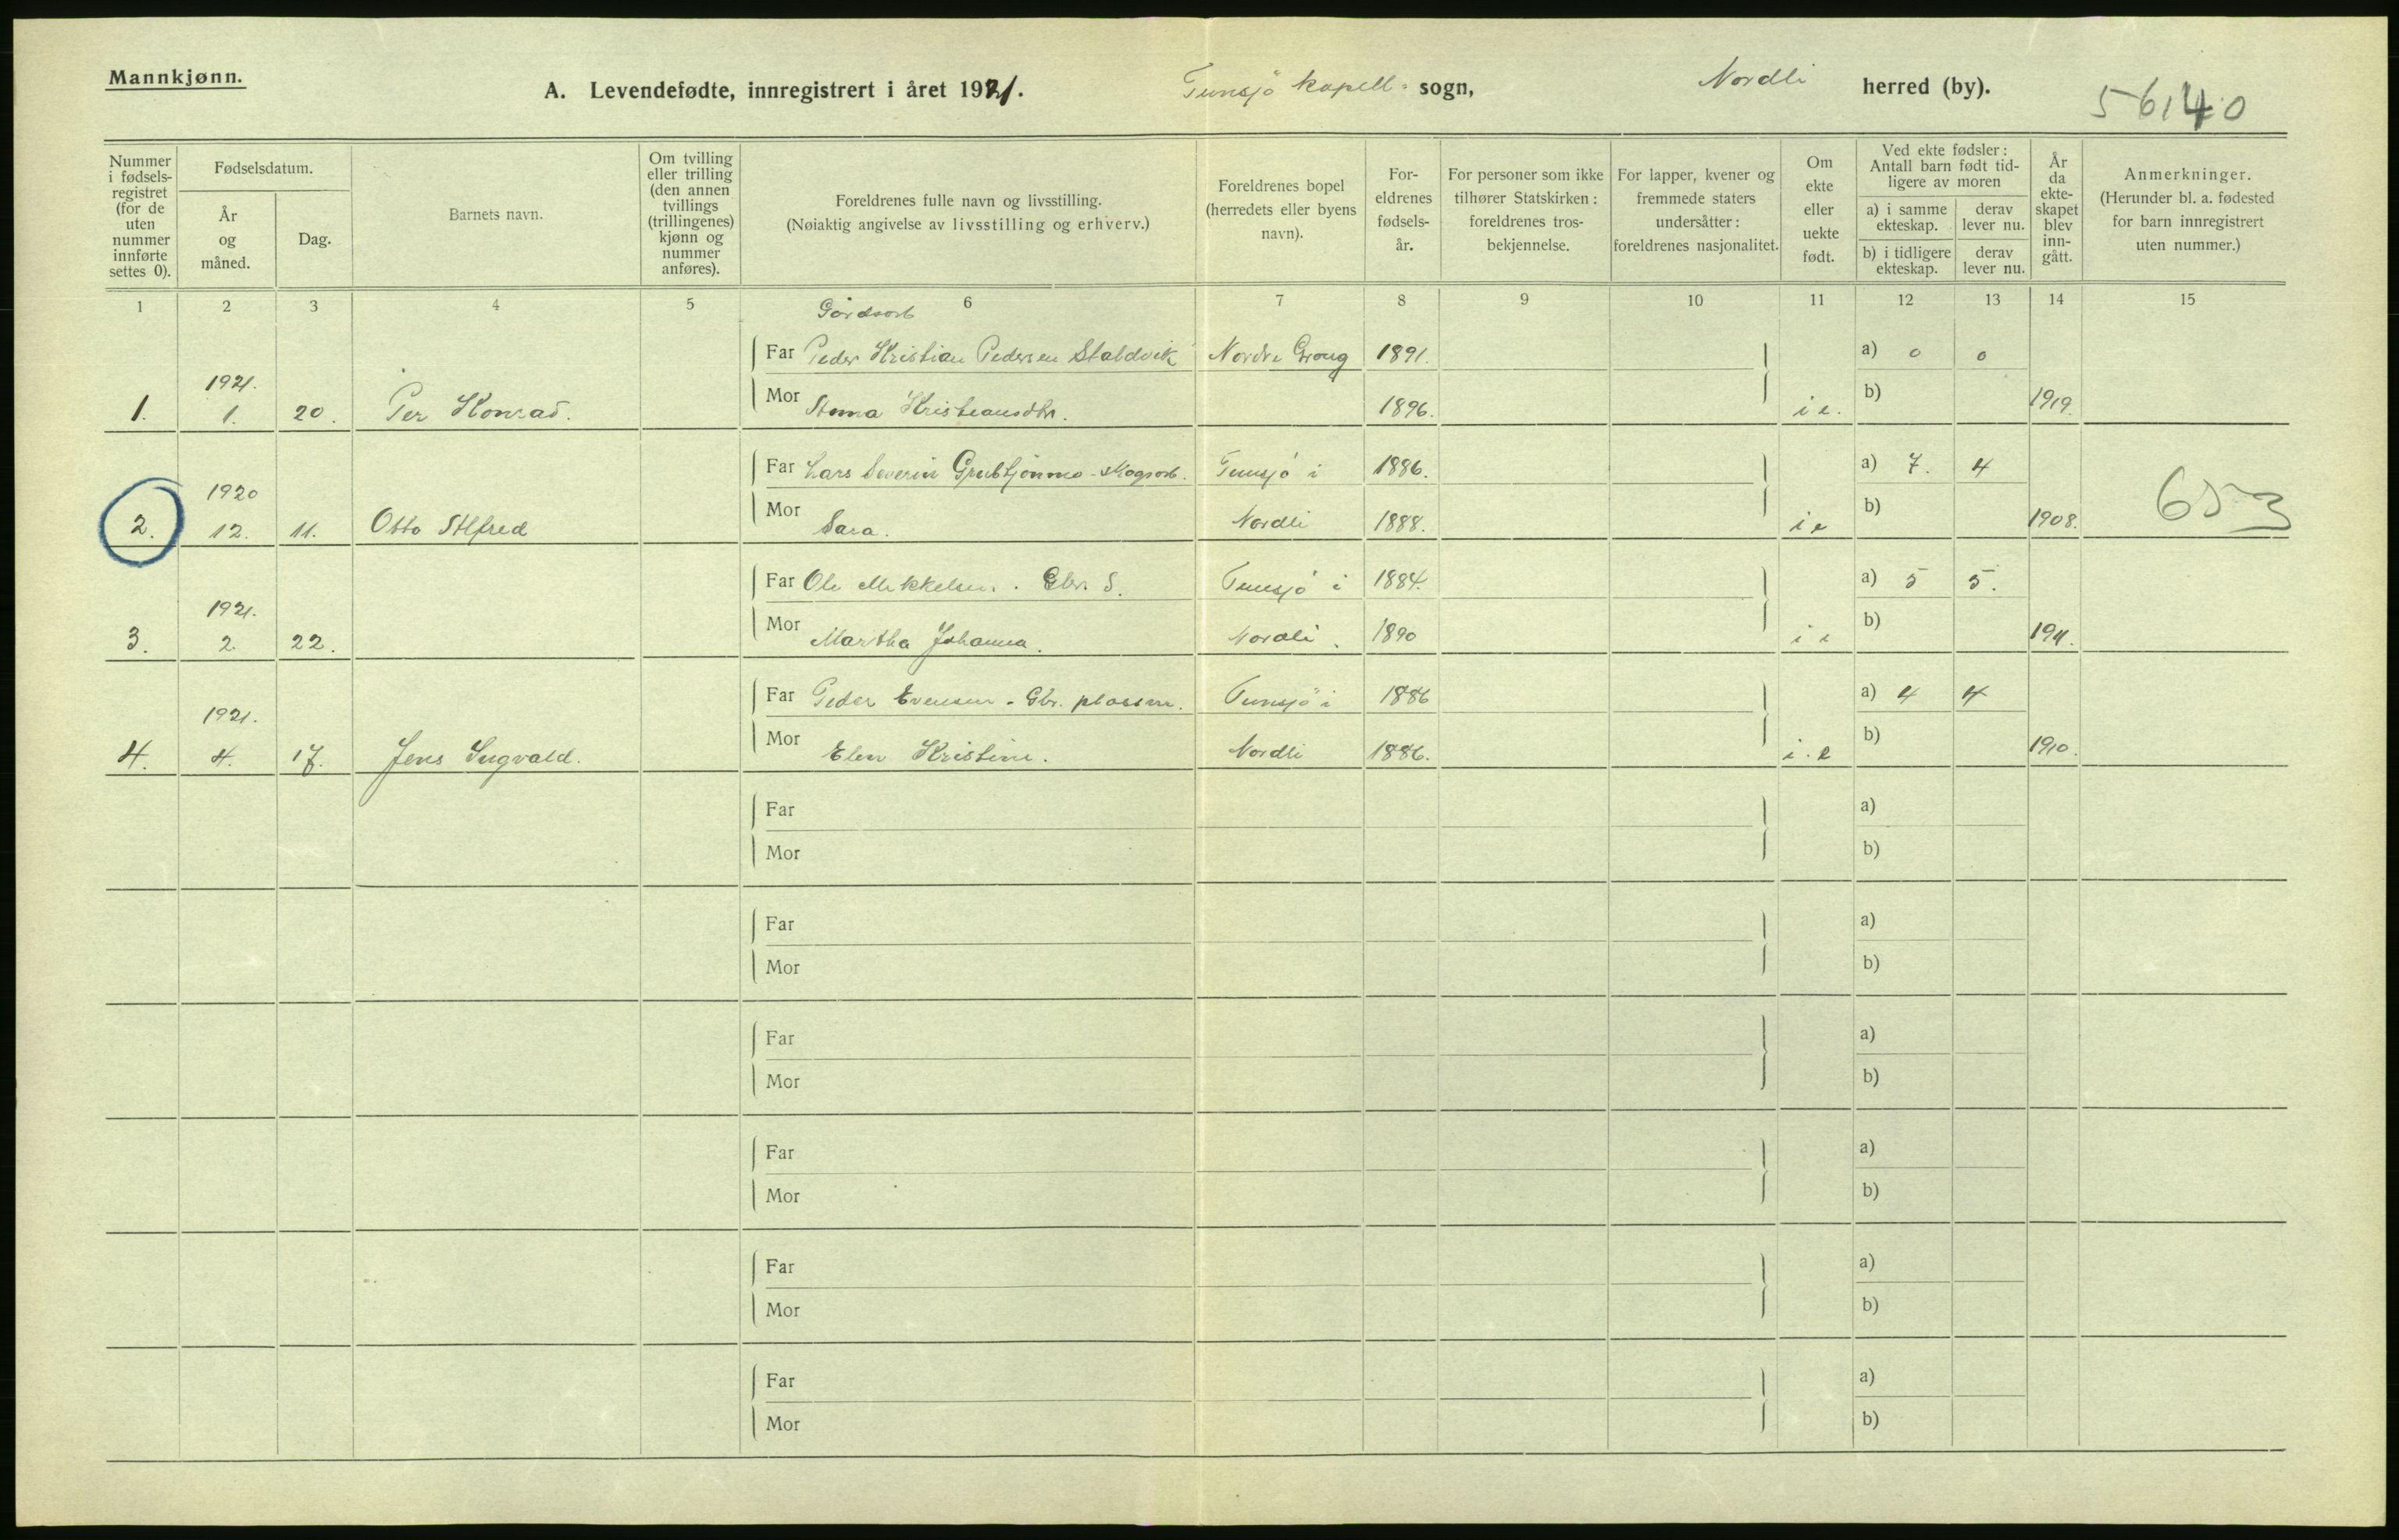 Mannkjønn.
A. Levendefødte, innregistrert i året 1921. Tunsjø kapell- sogn, Nordli herred (by).
56140
Nummer i fødsels-registret (for de uten nummer innførte settes 0).
Fødselsdatum.
År og måned.
Dag.
Barnets navn.
Om tvilling eller trilling (den annen tvillings (trillingenes) kjønn og nummer anføres).
Foreldrenes fulle navn og livsstilling.
(Nøiaktig angivelse av livsstilling og erhverv.)
Foreldrenes bopel (herredets eller byens navn).
For-eldrenes fødsels-år.
For personer som ikke tilhører Statskirken: foreldrenes tros-bekjennelse.
For lapper, kvener og fremmede staters undersåtter: foreldrenes nasjonalitet.
Om ekte eller uekte født.
Ved ekte fødsler: Antall barn født tid-ligere av moren
a) i samme ekteskap.
derav lever nu.
b) i tidligere ekteskap.
derav lever nu.
År da ekte-skapet blev inn-gått.
Anmerkninger.
(Herunder bl. a. fødested for barn innregistrert uten nummer.)
1 2 3 4 5 6 7 8 9 10 11 12 13 14 15
Gårdsarb
Far Peder Kristian Pedersen Staldvik Nordre Grong 1891. a) 0 0
1921.
1. 1. 20. Per Konrad. Mor Anna Kristiansdtr. 1896. i e. b) 1919.
Far Lars Severin Grubtjønmo - Skogsarb. Tunsjø i 1886. a) 7. 4
1920
2. 12. 11. Otto Alfred Mor Sara. Nordli 1888. i e b) 1908. 653
Far Ole Mikkelsen. Gbr. S. Tunsjø i 1884. a) 5 5.
1921.
3. 2. 22. Mor Martha Johanna. Nordli. 1890 i e b) 1911.
Far Peder Evensen - Gbr. plassm. Tunsjø i 1886 a) 4 4
1921.
4. 4. 17. Jens Ingvald. Mor Elen Kristine. Nordli 1886. i. e b) 1910.
Far a)
Mor b)
Far a)
Mor b)
Far a)
Mor b)
Far a)
Mor b)
Far a)
Mor b)
Far a)
Mor b)